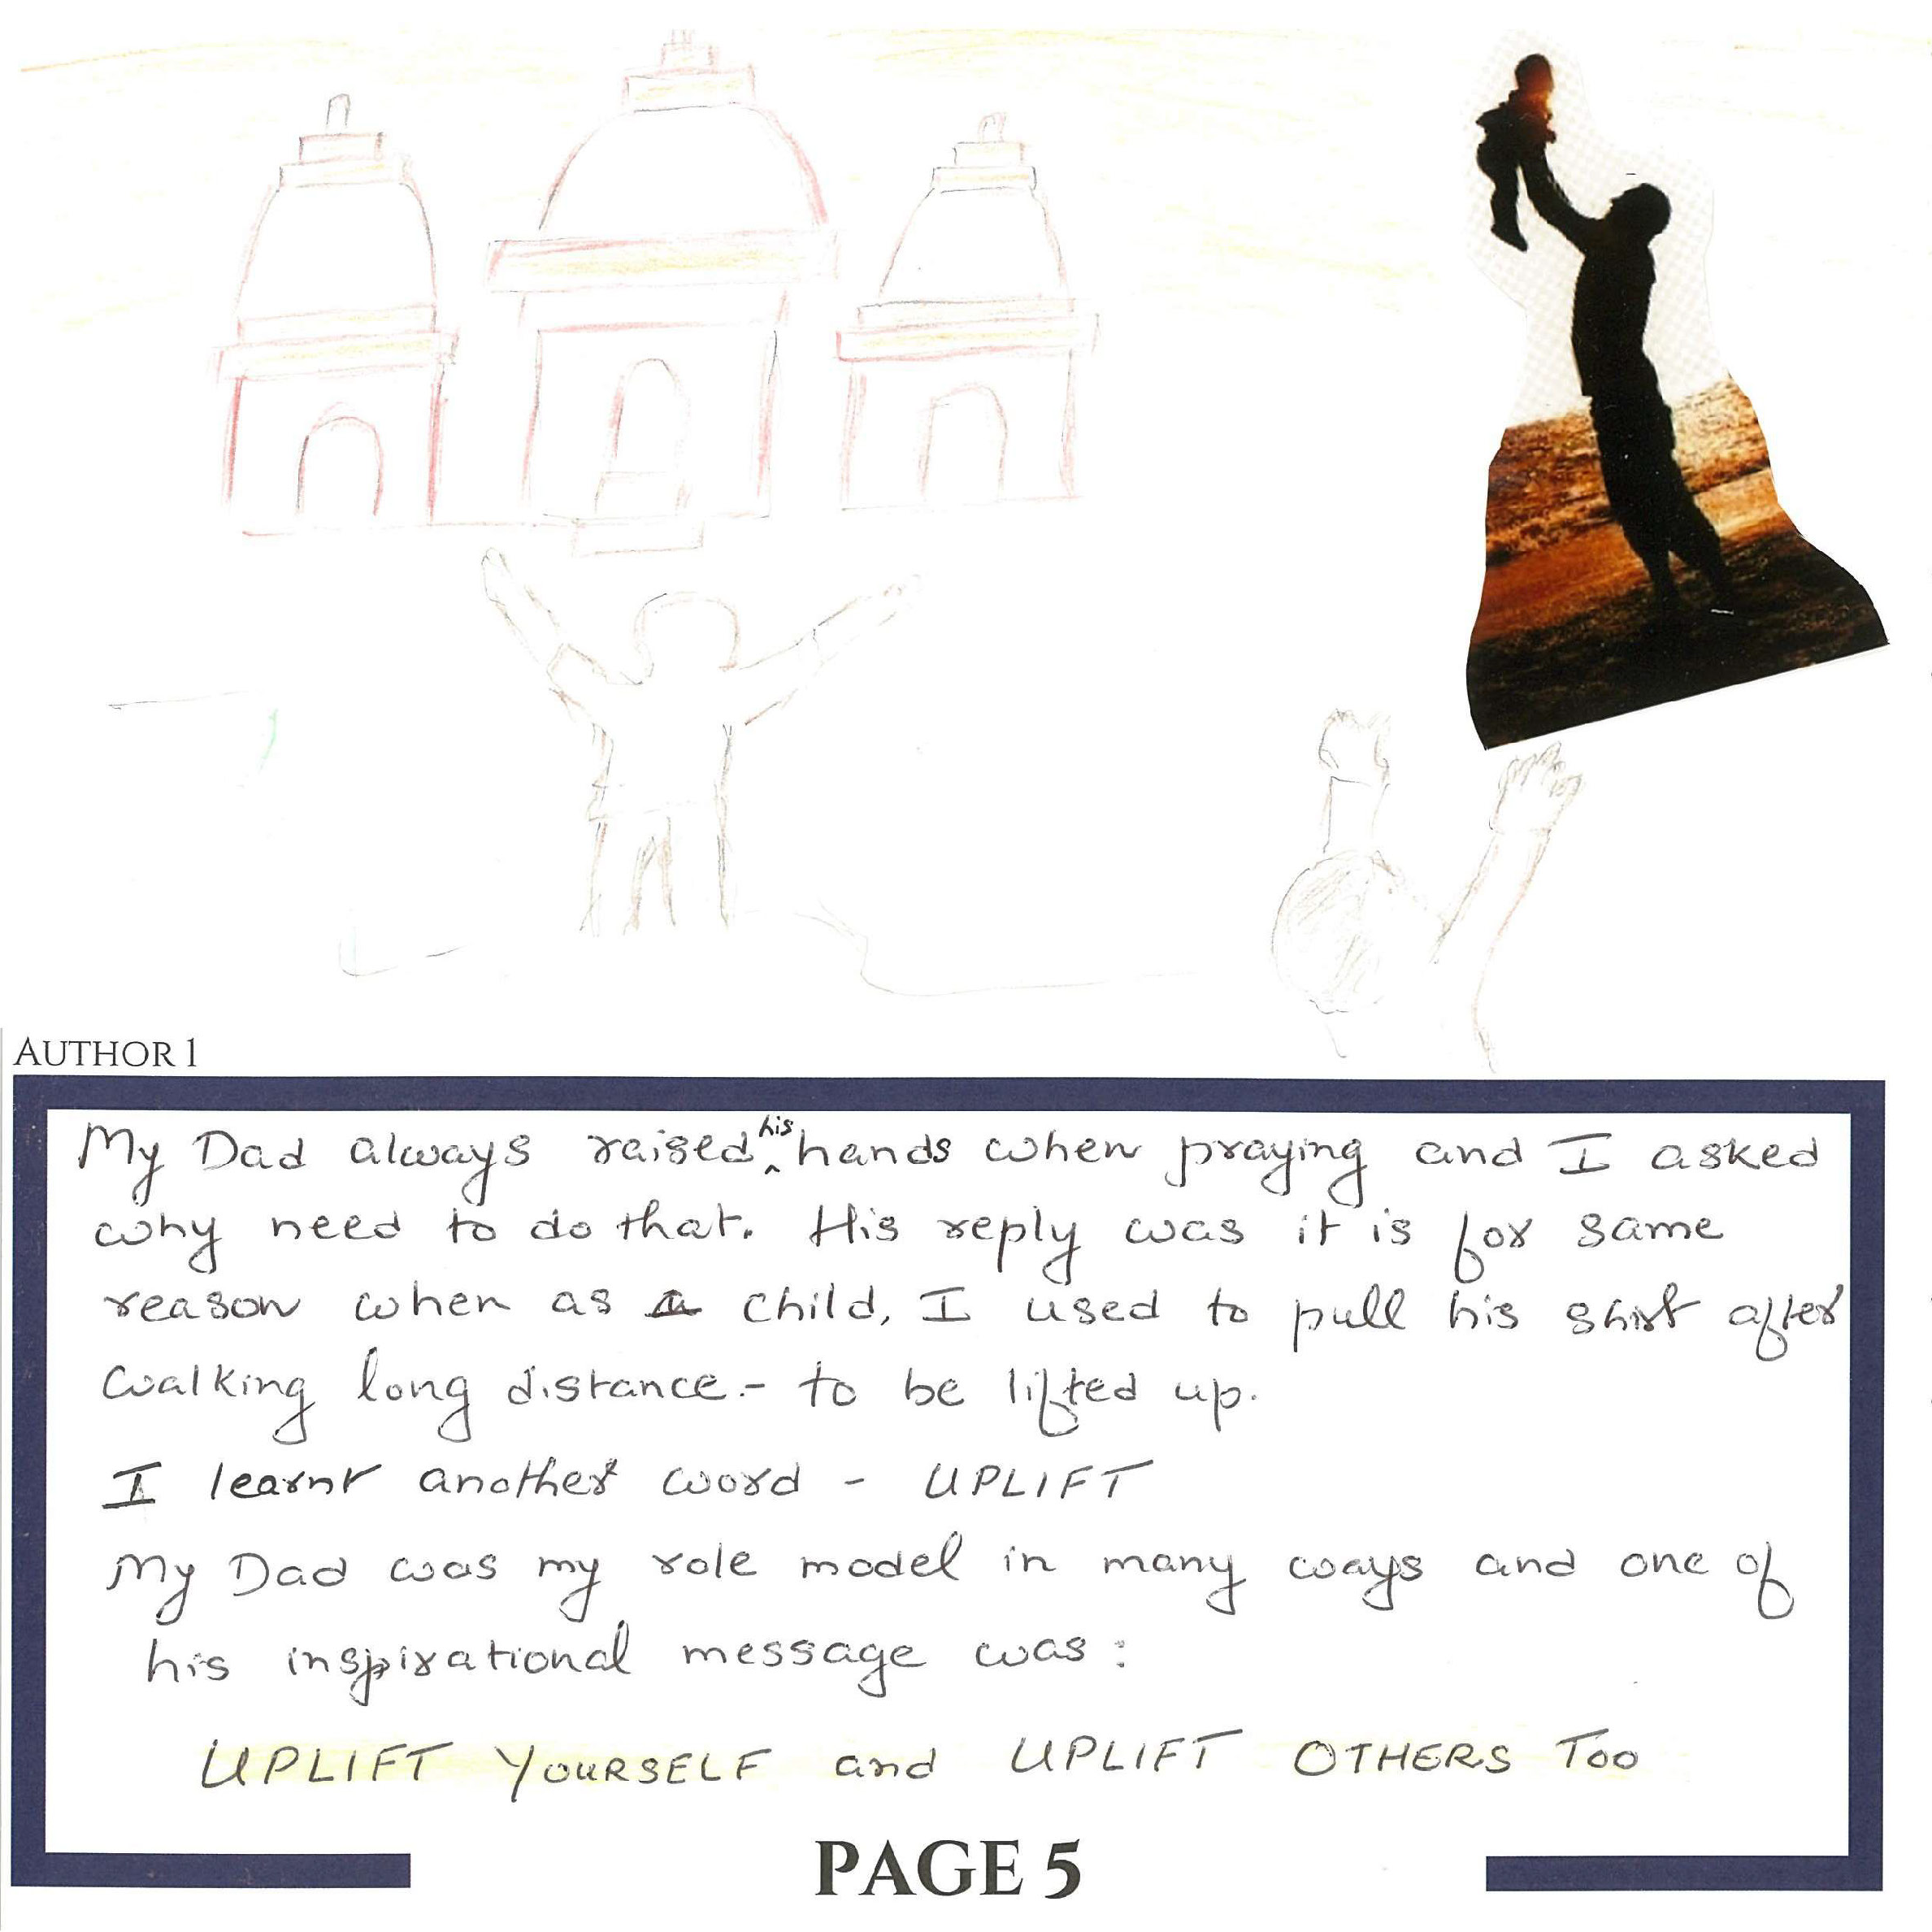 AUTHOR 1
My Dad always raised his hands when praying and I asked
why need to do that. His reply was it is for same
reason when as a child, I used to pull his shirt after
walking long distance - to be lifted up.
I learnt another word - UPLIFT
My Dad was my role model in many ways and one of
his inspirational message was:
UPLIFT YOURSELF and UPLIFT OTHERS TOO
PAGE 5